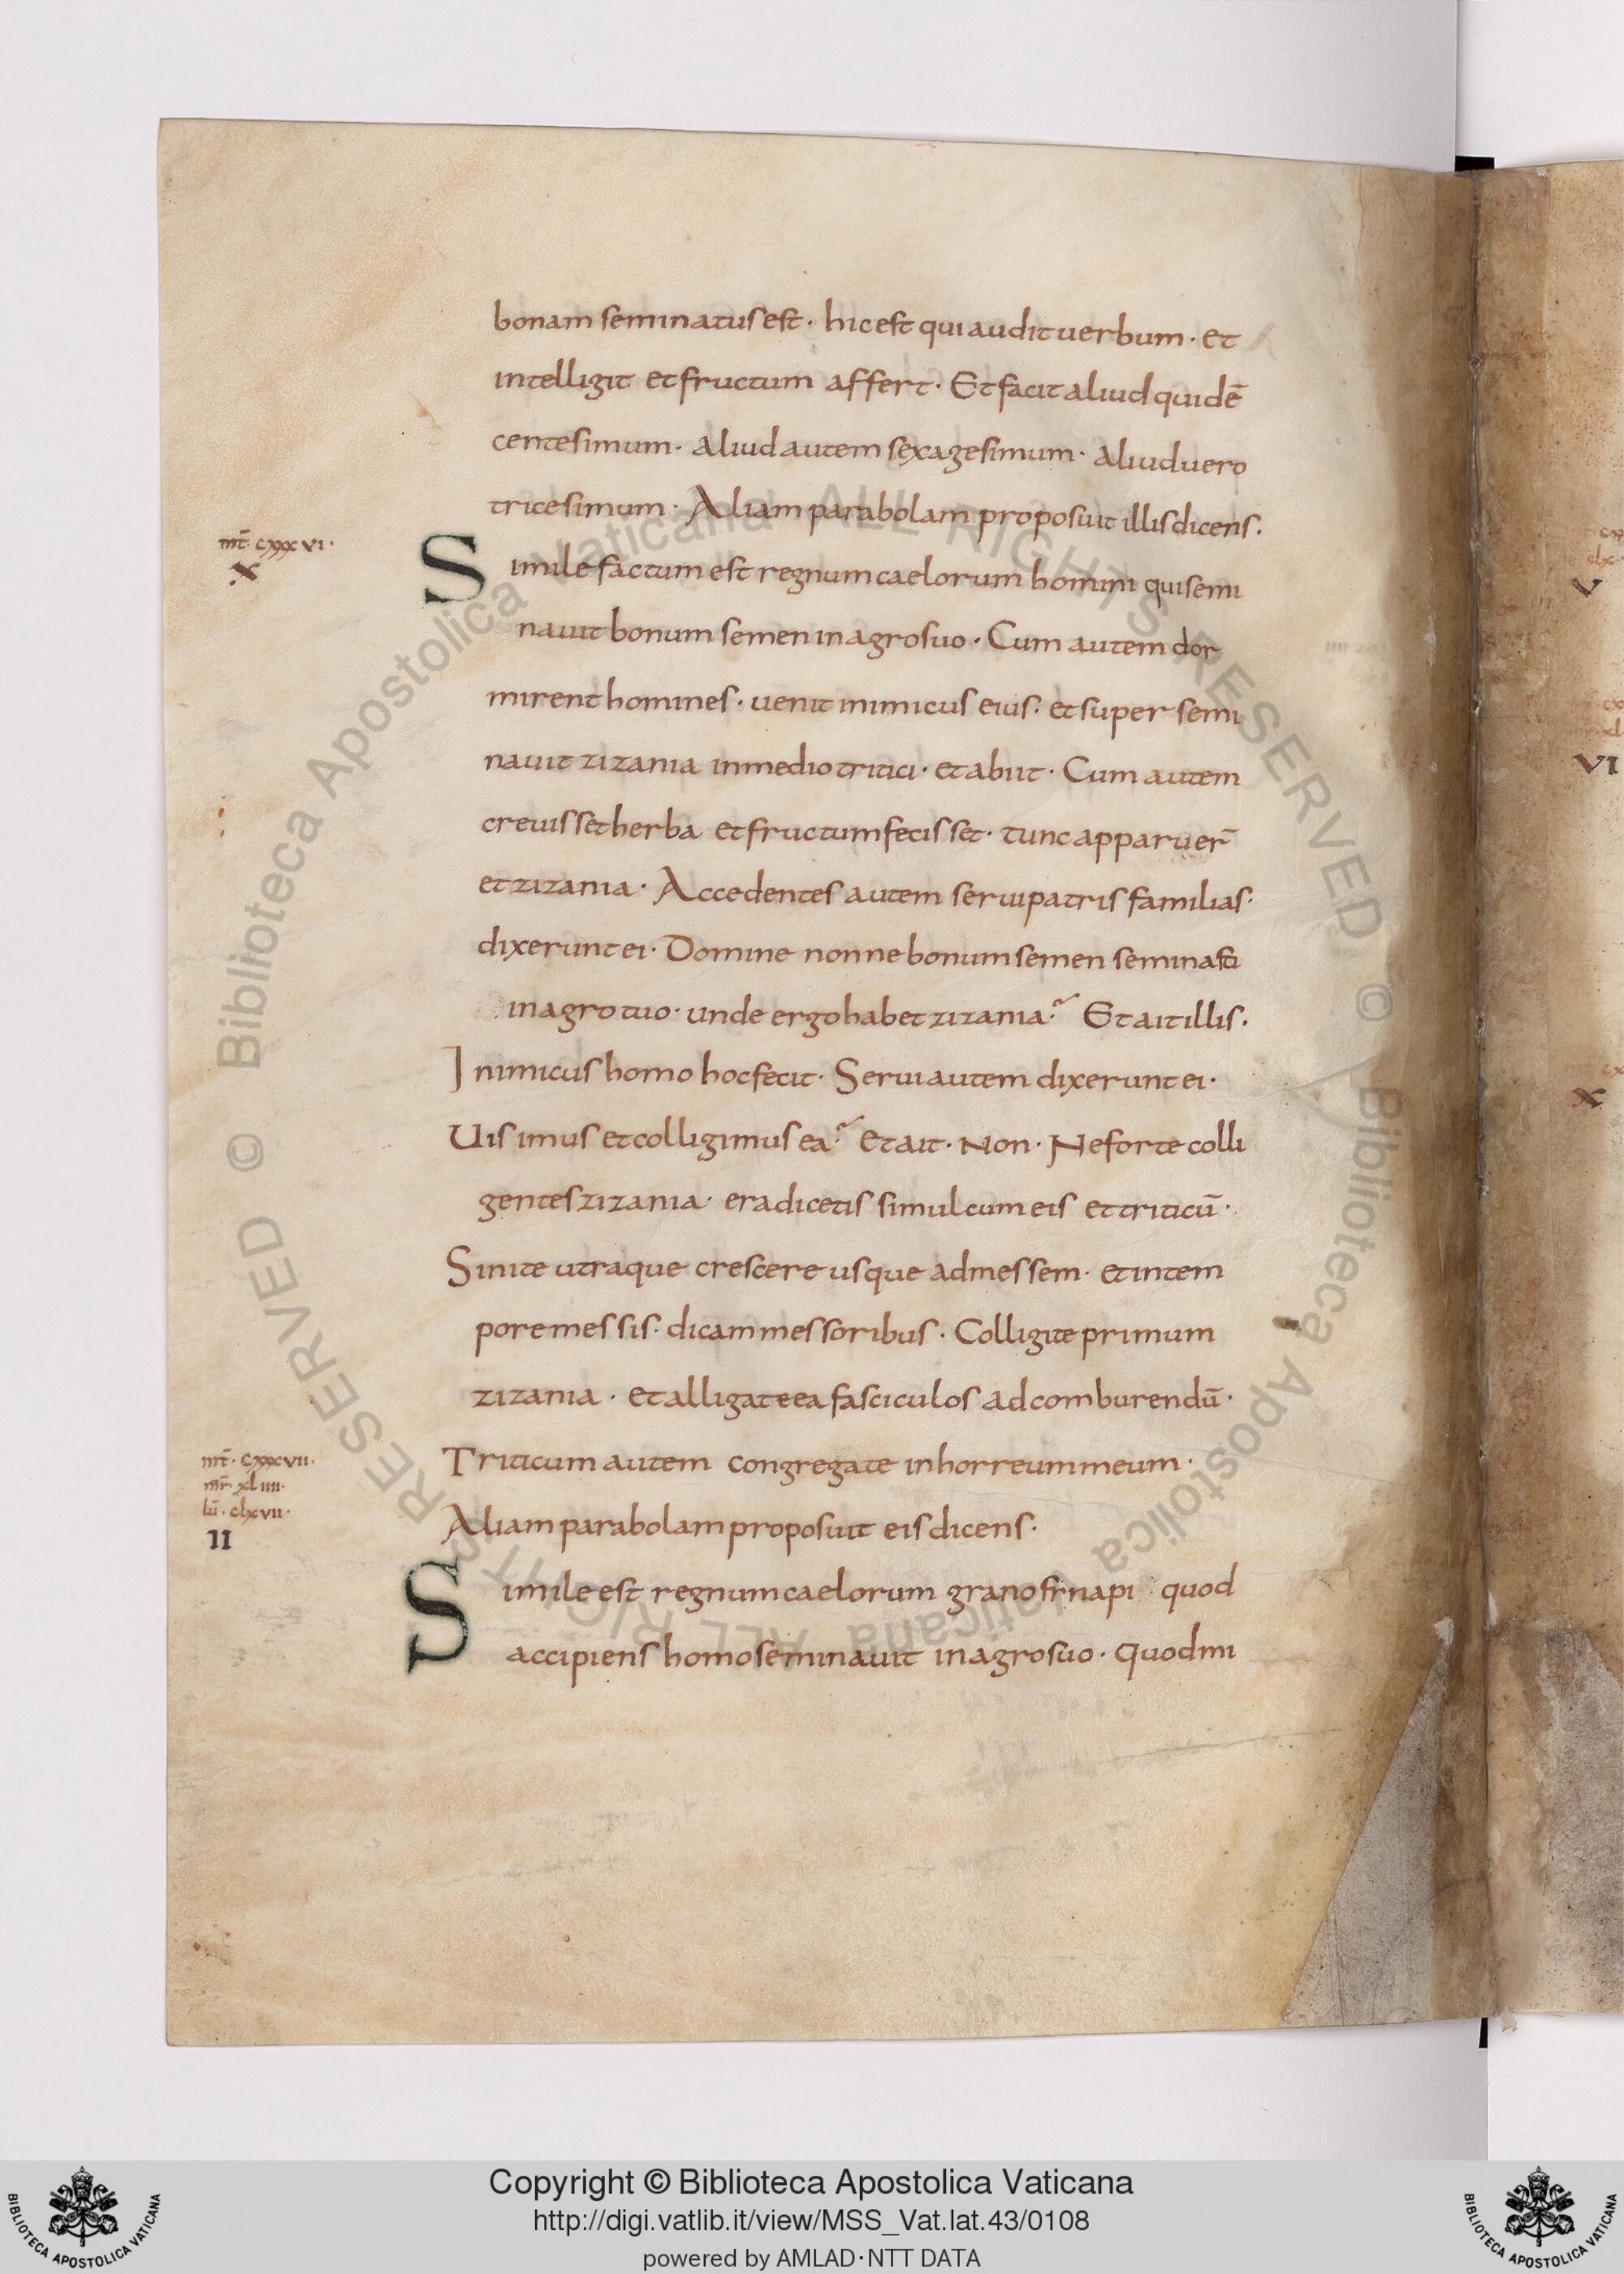 bonam seminatus est · hic est qui audit uerbum · et
intelligit et fructum affert · Et facit aliud quidē
centesimum · aliud autem sexagesimum · aliud uero
tricesimum · Aliam parabolam proposuit illis dicens ·
mt̄ · cxxxvi ·
x
Simile factum est regnum caelorum homini qui semi
nauit bonum semen in agro suo · Cum autem dor
mirent homines · uenit inimicus eius · et super semi
nauit zizania in medio tritici · et abiit · Cum autem
creuisset herba et fructum fecisset · tunc apparuer̄
et zizania · Accedentes autem serui patris familias ·
dixerunt ei · Domine nonne bonum semen seminasti
in agro tuo · unde ergo habet zizania ? Et ait illis ·
Inimicus homo hoc fecit · Serui autem dixerunt ei ·
Uis imus et colligimus ea ? et ait · Non · Ne forte colli
gentes zizania · eradicetis simul cum eis et triticū ·
Sinite utraque crescere usque ad messem · et in tem
pore messis · dicam messoribus · Colligite primum
zizania · et alligate ea fasciculos ad comburendū ·
Triticum autem congregate in horreum meum ·
mt̄ · cxxxvii ·
mr̄ · xliiii ·
lū · clxvii ·
II
Aliam parabolam proposuit eis dicens ·
Simile est regnum caelorum grano sinapi · quod
accipiens homo seminauit in agro suo · Quod mi
V
VI
X
© Biblioteca Apostolica Vaticana ALL RIGHTS RESERVED
© Biblioteca Apostolica Vaticana ALL RIGHTS RESERVED
Copyright © Biblioteca Apostolica Vaticana
http://digi.vatlib.it/view/MSS_Vat.lat.43/0108
powered by AMLAD·NTT DATA
BIBLIOTECA APOSTOLICA VATICANA
BIBLIOTECA APOSTOLICA VATICANA